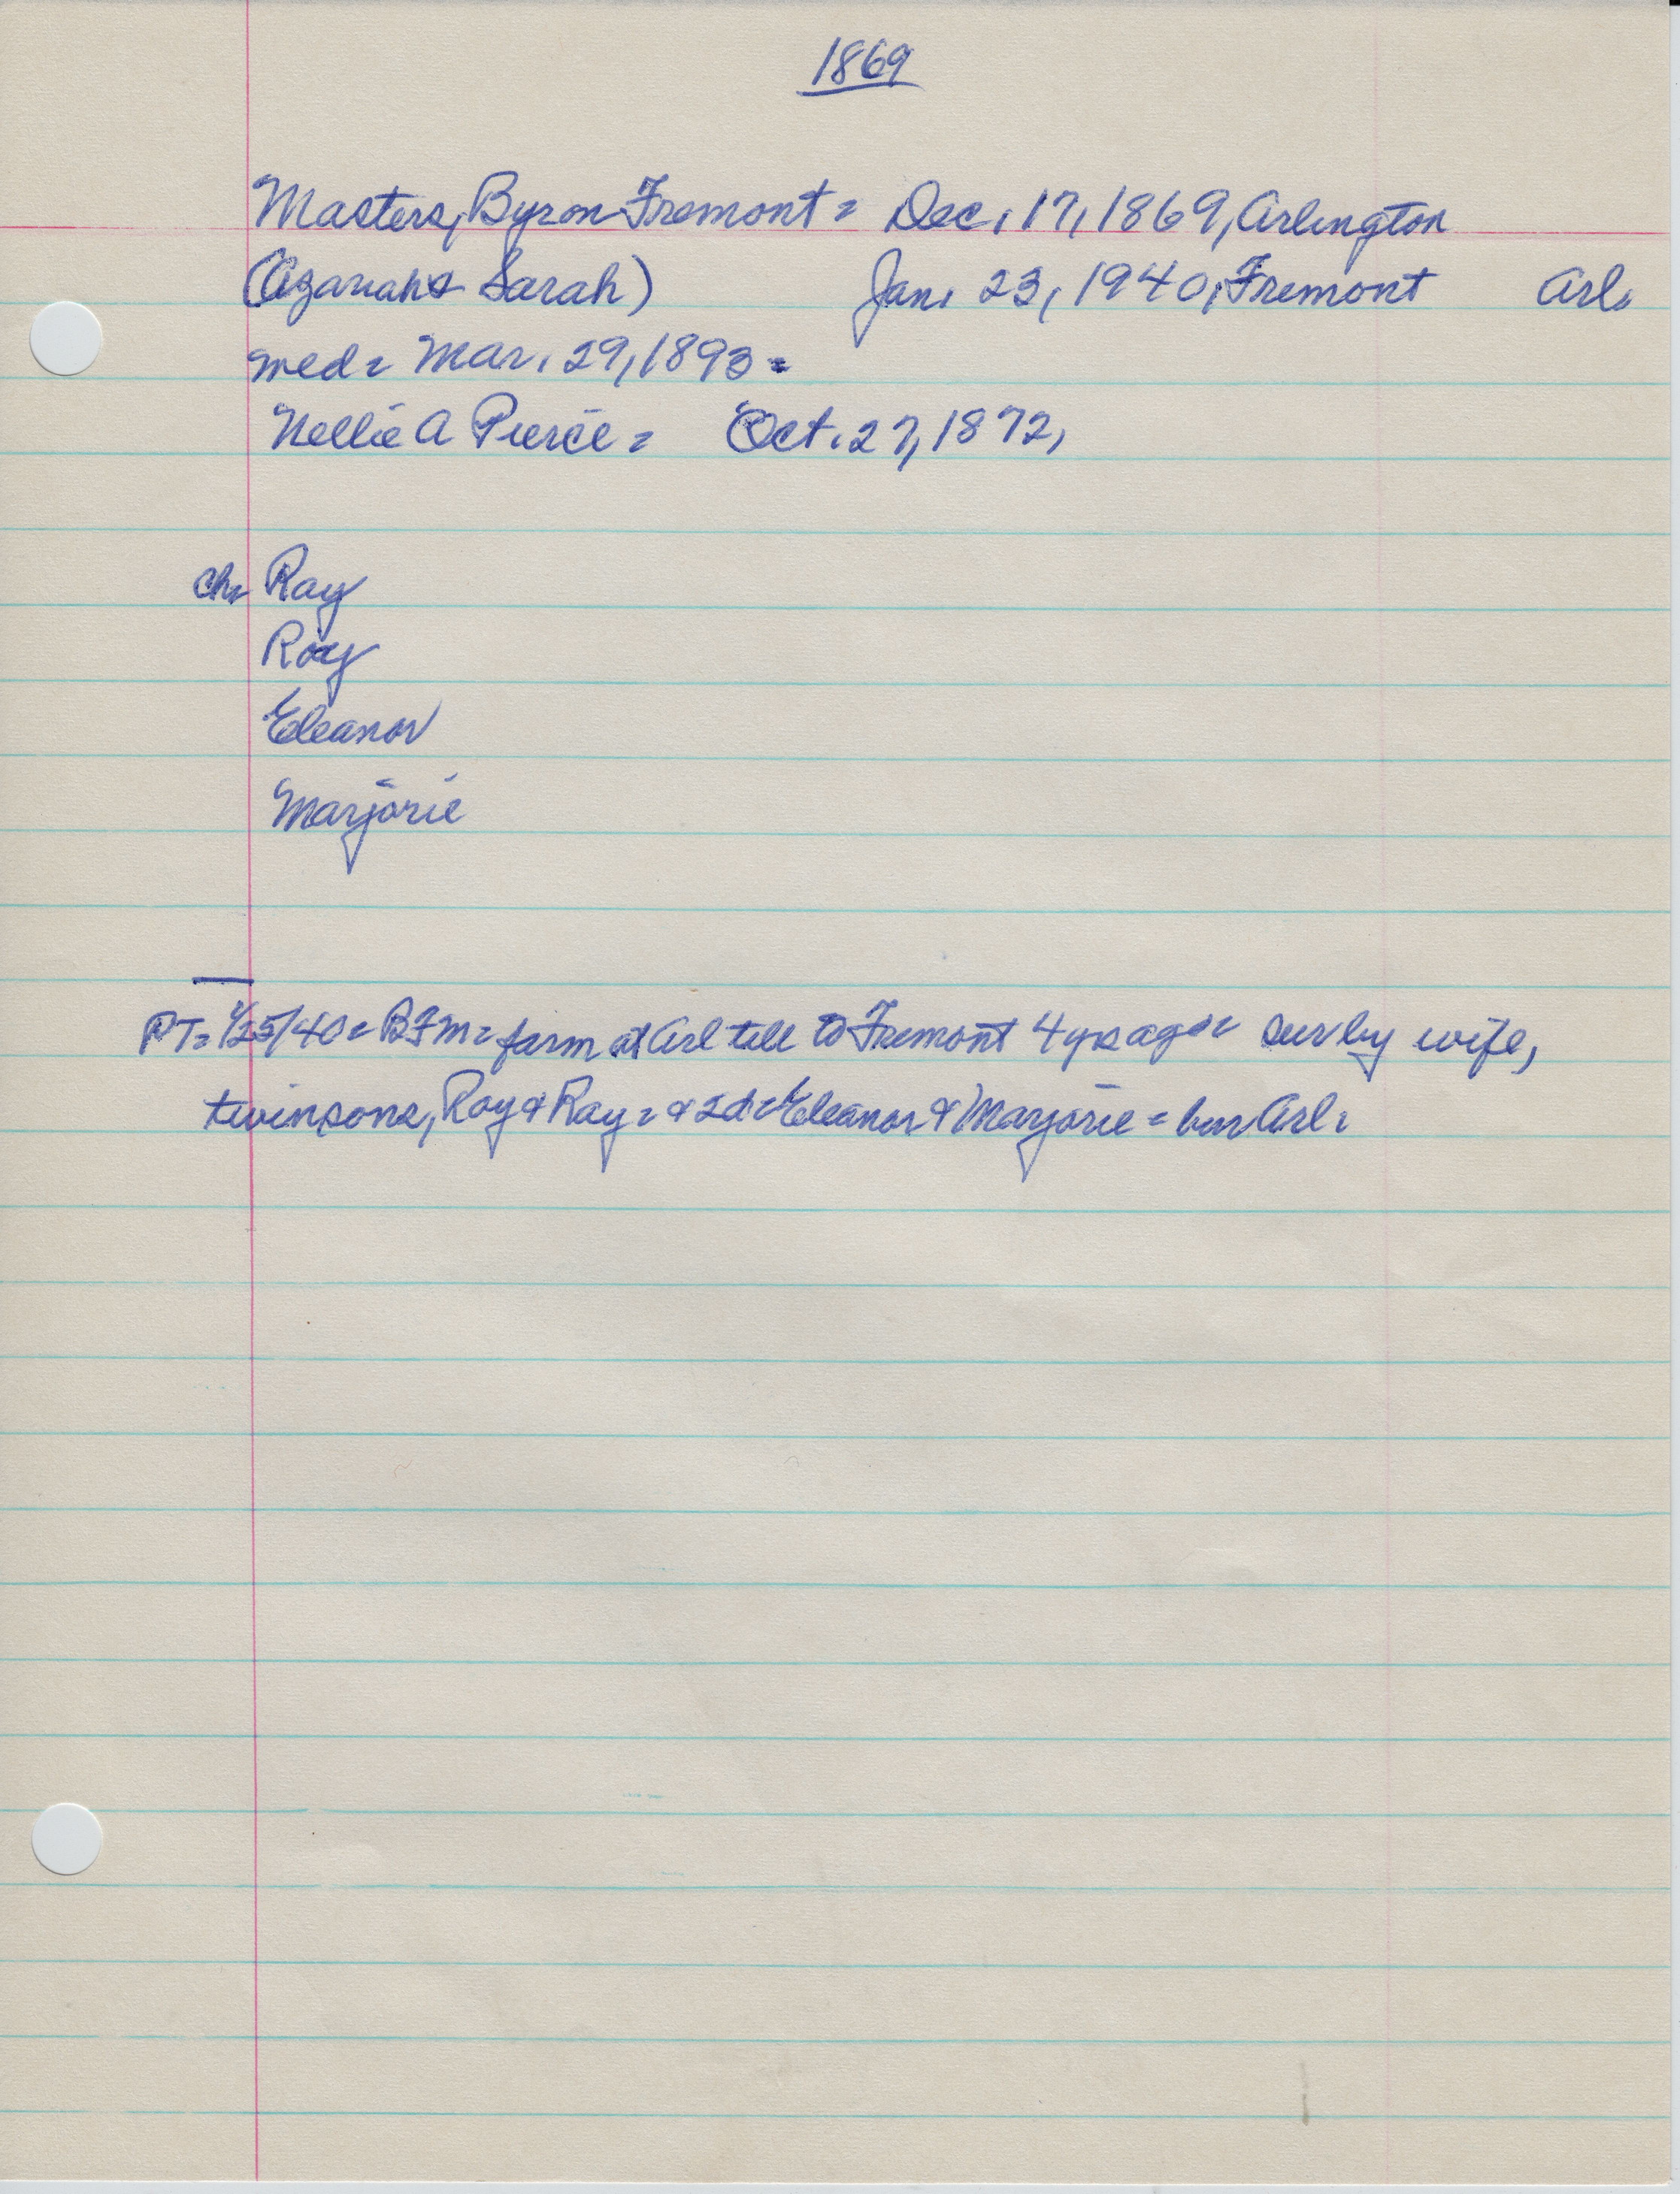 1869
Masters, Byron Fremont = Dec. 17, 1869, Arlington
(Azariah & Sarah) Jan. 23, 1940, Fremont Arl.
med = Mar. 29, 1893 =
Nellie A Pierce = Oct. 27, 1872,
ch = Ray
Roy
Eleanor
Marjorie
PT = 1/25/40 = BFM = farm at Arl till to Fremont 4 yrs ago = sur by wife,
twin sons, Roy & Ray = & 2d = Eleanor & Marjorie = bur Arl =